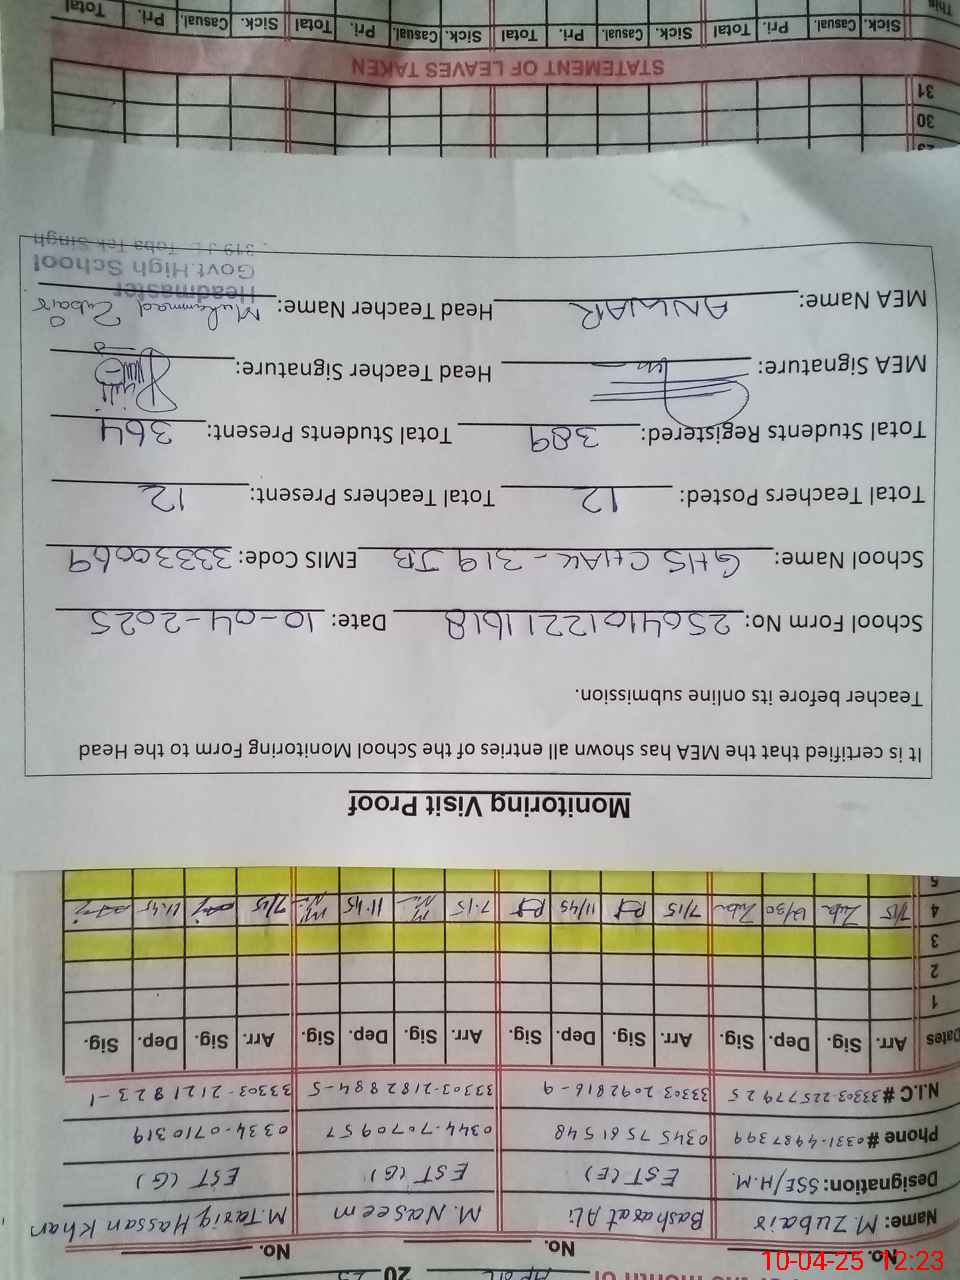 the month of April 2025
No. No. No.
Name: M. Zubair Basharat Ali M. Naseem M. Tariq Hassan Khan
Designation: SSE/H.M. EST (E) EST (G) EST (G)
Phone # 0331-4987399 0345 7581548 0344-7070957 0334-0710319
N.I.C # 33303-2257792 5 33303-2092816-9 33303-2182884-5 33303-2121823-1
Dates Arr. Sig. Dep. Sig. Arr. Sig. Dep. Sig. Arr. Sig. Dep. Sig. Arr. Sig. Dep. Sig.
1
2
3
4 7/15 12/30 7/15 11/45 7.15 11.45 7/15 11:45
5
Monitoring Visit Proof
It is certified that the MEA has shown all entries of the School Monitoring Form to the Head
Teacher before its online submission.
School Form No: 2564101221 1618 Date: 10-04-2025
School Name: GHS CHAK-319 JB EMIS Code: 33330069
Total Teachers Posted: 12 Total Teachers Present: 12
Total Students Registered: 389 Total Students Present: 364
MEA Signature: Head Teacher Signature:
MEA Name: ANWAR Head Teacher Name: Muhammad Zubair
Headmaster
Govt.High School
319 J.B. Toba Tek Singh
30
31
STATEMENT OF LEAVES TAKEN
Sick. Casual. Pri. Total Sick. Casual. Pri. Total Sick. Casual. Pri. Total Sick. Casual. Pri. Total
This
10-04-25 12:23